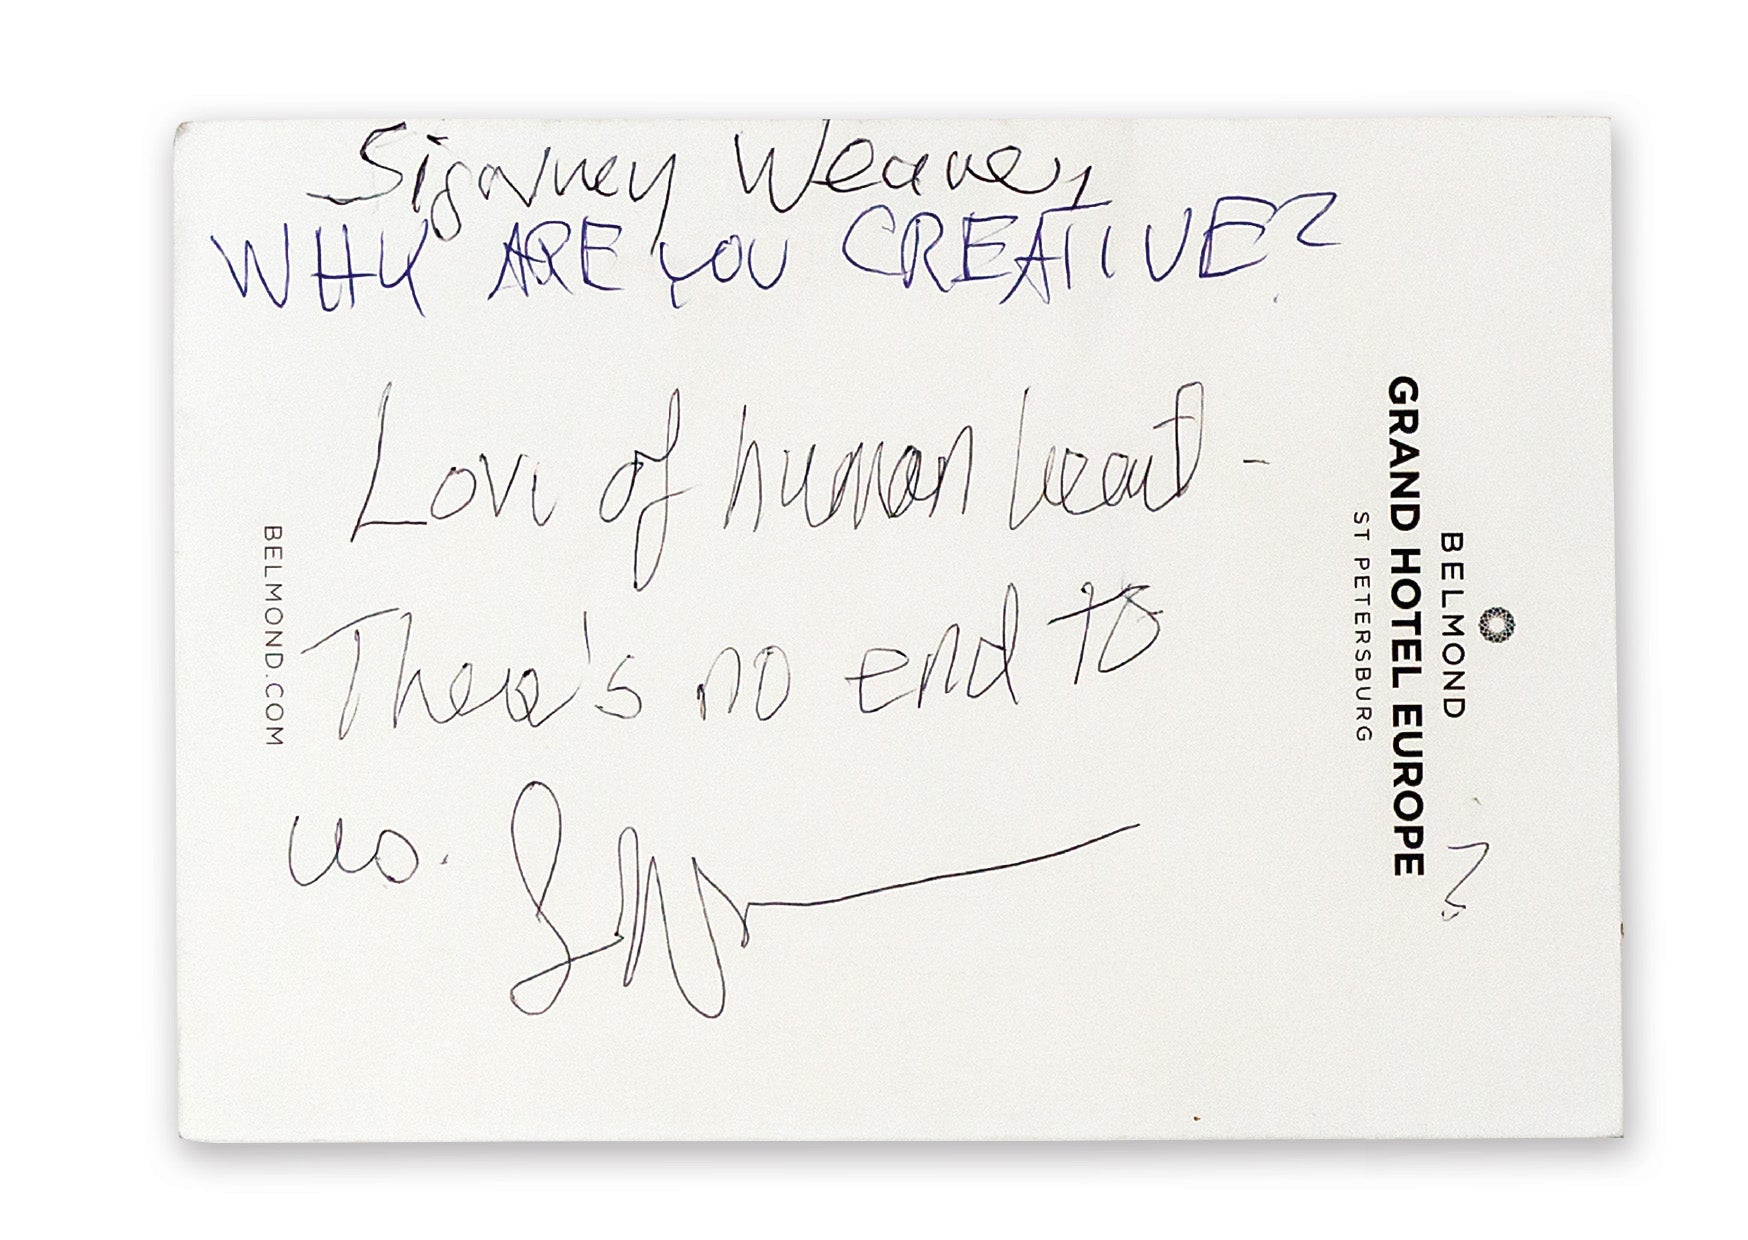 Sigourney Weaver
WHY ARE YOU CREATIVE?
Love of human heart -
There's no end to
us.
BELMOND
GRAND HOTEL EUROPE
ST PETERSBURG
BELMOND.COM
?